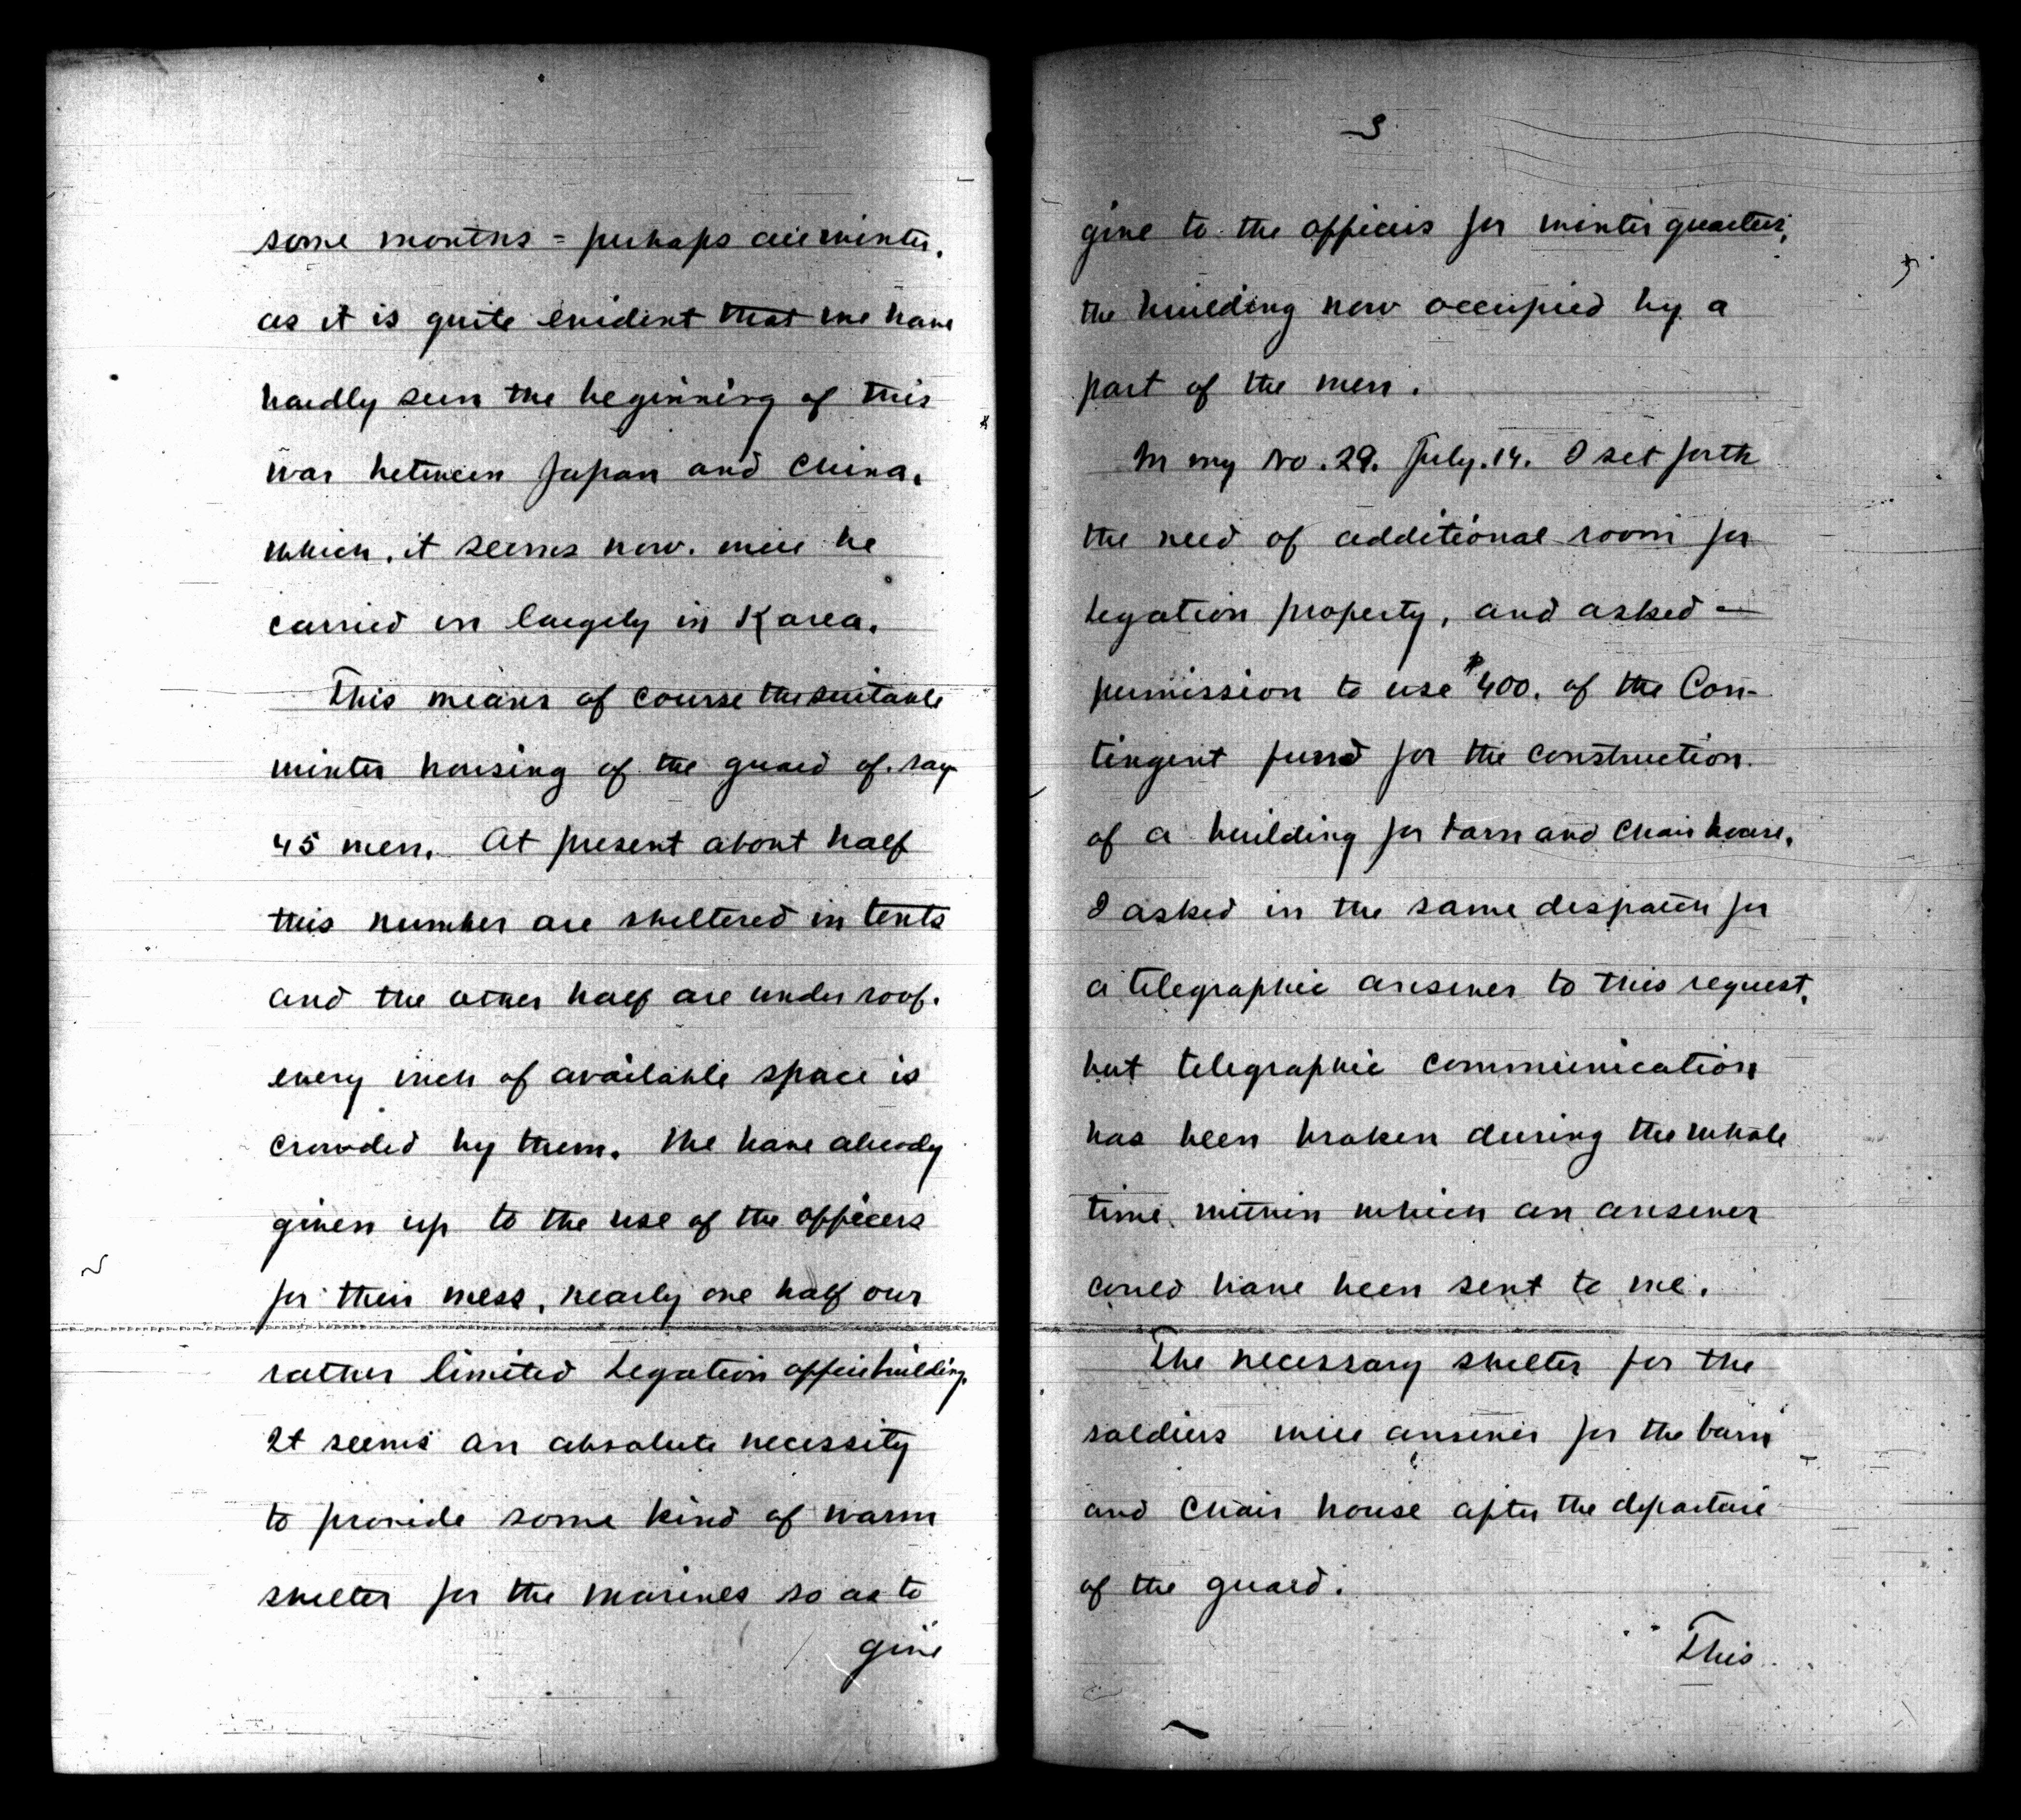 some months = perhaps all winter,
as it is quite evident that we have
hardly seen the beginning of this
war between Japan and China,
which, it seems now, will be
carried on largely in Korea.
This means of course the suitable
winter housing of the guard of, say
45 men. At present about half
this number are sheltered in tents
and the other half are under roof.
every inch of available space is
crowded by them. We have already
given up to the use of the officers
for their mess, nearly one half our
rather limited Legation office building.
It seems an absolute necessity
to provide some kind of warm
shelter for the marines so as to
give
3
give to the officers for winter quarters,
the building now occupied by a
part of the men.
In my No. 29. July. 14. I set forth
the need of additional room for
Legation property, and asked —
permission to use $400. of the Con-
tingent fund for the construction
of a building for barn and chair house.
I asked in the same despatch for
a telegraphic answer to this request,
but telegraphic communication
has been broken during the whole
time within which an answer
could have been sent to me.
The necessary shelter for the
soldiers will answer for the barn
and chair house after the departure
of the guard.
This